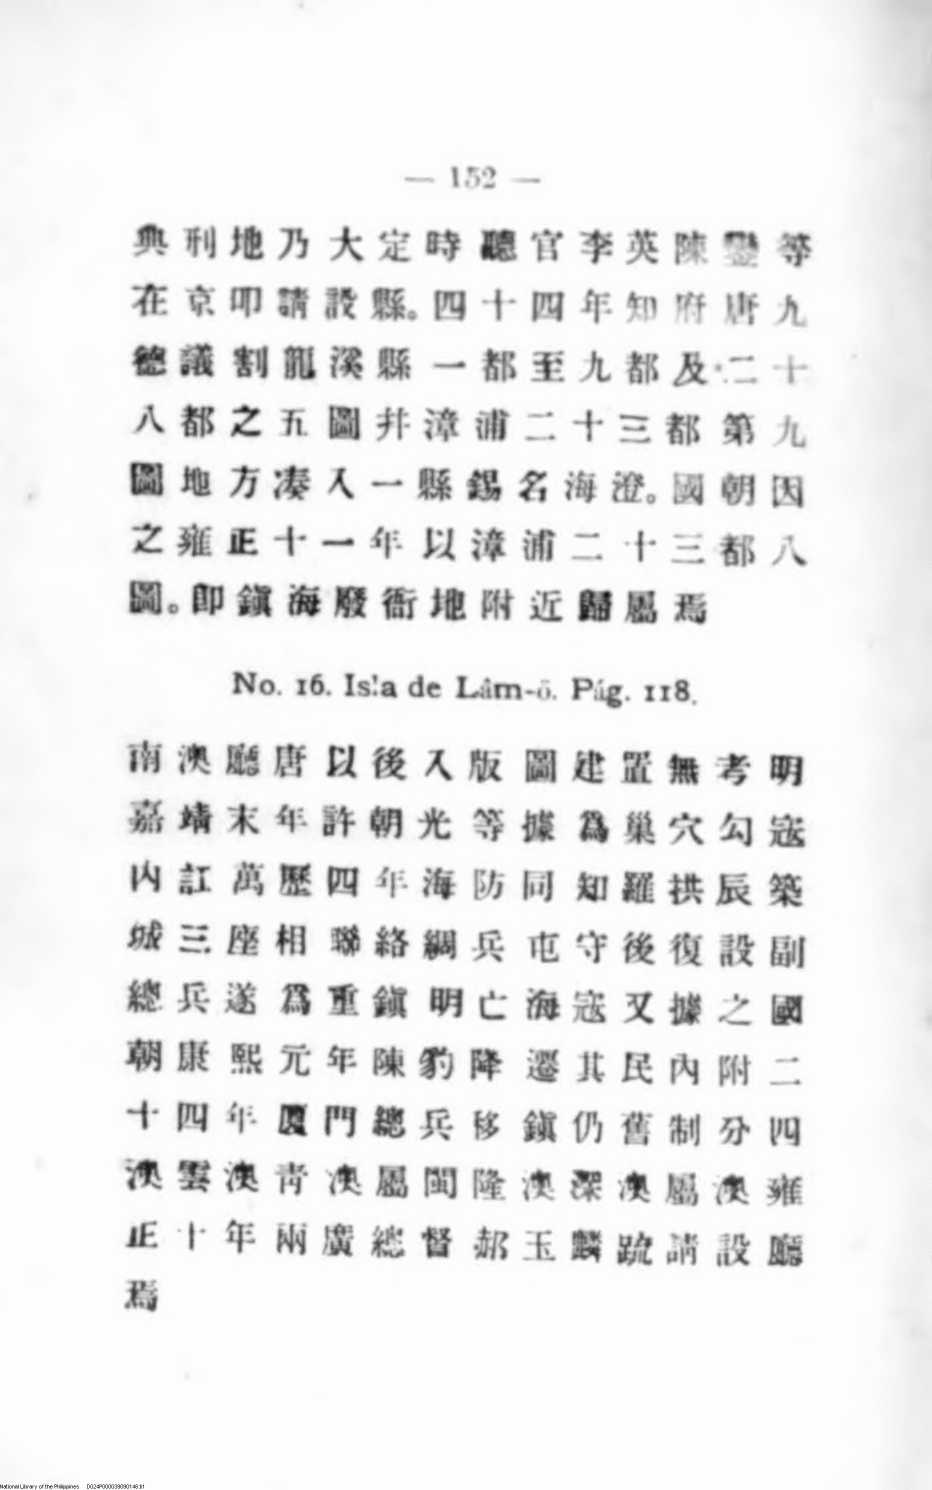 — 152 —
典刑地乃大定時聽官李英陳鑾等
在京叩請設縣。四十四年知府唐九
德議割龍溪縣一都至九都及二十
八都之五圖并漳浦二十三都第九
圖地方凑入一縣錫名海澄。國朝因
之雍正十一年以漳浦二十三都八
圖。卽鎭海廢衙地附近歸屬焉
No. 16. Isla de Lâm-ō. Pág. 118.
南澳廳唐以後入版圖建置無考明
嘉靖末年許朝光等據爲巢穴勾寇
内訌萬歷四年海防同知羅拱辰築
城三座相聯絡綢兵屯守後復設副
總兵遂爲重鎭明亡海寇又據之國
朝康熙元年陳豹降遷其民內附二
十四年厦門總兵移鎭仍舊制分四
澳雲澳靑澳屬閩隆澳深澳屬澳雍
正十年兩廣總督郝玉麟䟽請設廳
焉
National Library of the Philippines